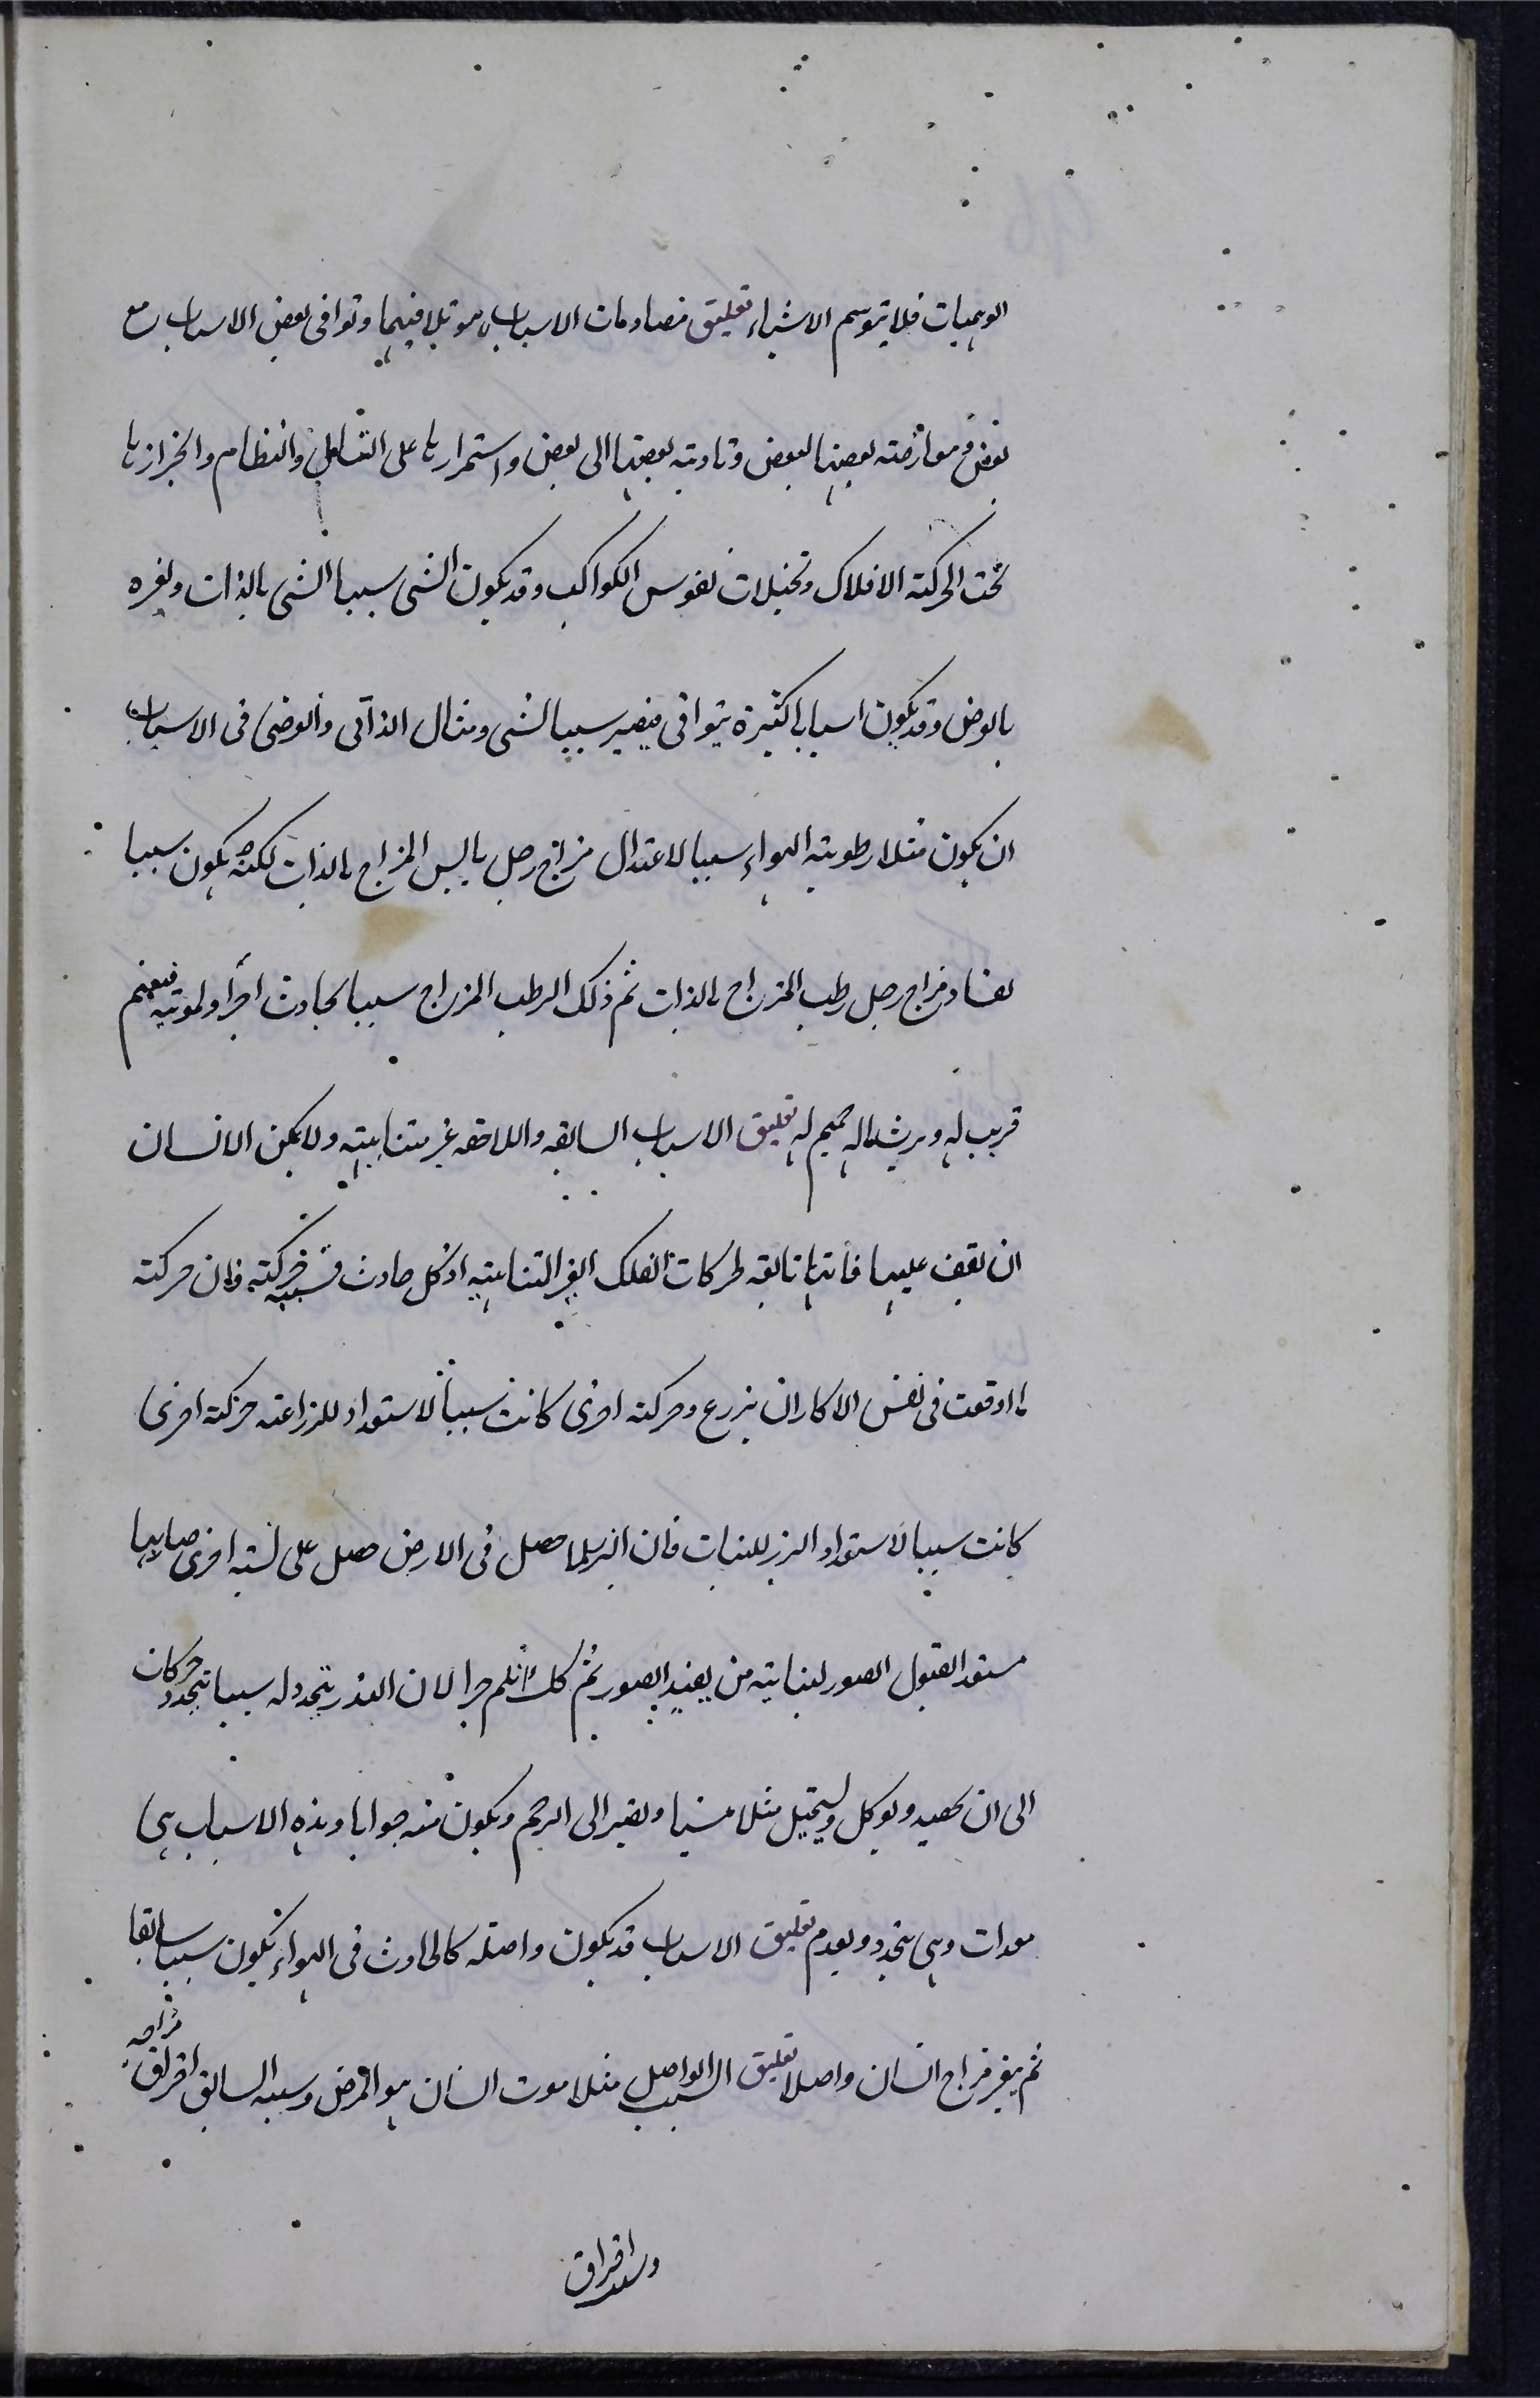 الوهميات فلا يتوسم الاشياء تعليق مصادمات الاسباب هو تلاقيها وتوافى بعض الاسباب مع
بعض ومعارضته بعضها لبعض وتادية بعضها الى بعض واستمرارها على النظام وانجرارها
تحت الحركة الافلاك وتخيلات نفوس الكواكب وقد يكون الشى سببا الشى بالذات ولغيره
بالعرض وقد يكون اسبابا كثيرة يتوافى فيصير سببا لشى ومثال الذاتى والعرضى فى الاسباب
ان يكون مثلا رطوبته الهواء سببا لاعتدال مزاج رجل يابس المزاج بالذات لكنه يكون سببا
لفساد مزاج رجل رطب المزاج بالذات ثم ذلك الرطب المزاج سببا لحادث اخر او لموته فيغتم
قريب له ويرث ماله حميم له تعليق الاسباب السابقه واللاحقه غير متناهيته ولا يمكن الانسان
ان يقف عليها فانها تابعه لحركات الفلك الغير المتناهيته اذ كل حادث فسببه حركته فان حركته
ما اوقعت فى نفس الاكار ان يزرع وحركته اخرى كانت سببا لاستعداد للزراعته حركته اخرى
كانت سببا لاستعداد البزر للنبات فان البزر لما حصل فى الارض حصل على نسبه اخرى صار بها
مستعدا لقبول الصور لنباتيته من يفيد الصور ثم كك هلم جرا لان البذر يتجدد له سببا تتجدد حركات
الى ان يحصد ويوكل ويستحيل مثلا منيا ويصير الى الرحم ويكون منه حيوانا وهذه الاسباب هى
معدات وهى يتجدد ويعدم تعليق الاسباب قد يكون واصلة كالحادث فى الهواء يكون سببا سابقا
ثم يغير مزاج انسان واصلا تعليق السبب الواصل مثلا موت انسان هو المرض وسببه السابق افراق مزاجه
وسبب افراق